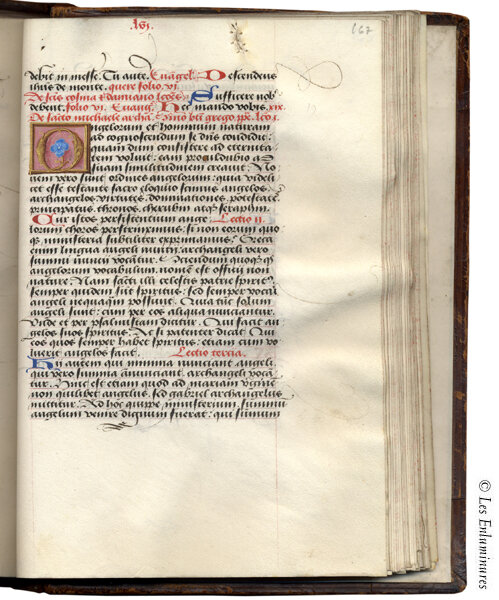 lxj.
167
debit in messe. Tu autē. Euāgel. Descendens
ihūs de monte. quere folio. vi
De scīs cosma et damiano lcōes. Sufficere nob̄
debent. folio. vi. Euang. Hec mando vobis. xix.
De sācto michaele archā.
Angelorum et hominum naturam
ad cognoscendum se dn̄s condidit:
quam dum consistere ad eternita
tem voluit: eam proculdubio ad
suam similitudinem creauit. No
uem vero sunt ordines angelorum: quia videli
cet esse testante sacro eloquio scimus angelos.
archangelos. virtutes. dominationes. potestates.
principatus. thronos. cherubin atq̄ seraphin.
Cur istos persistentium ange Lectio ii.
lorum choros perstrinximus: si non eorum quo
q̄ ministeria subtiliter exprimamus? Greca
enim lingua angeli nuntii. archangeli vero
summi nuncii vocātur. Et sciendum quoq̄ q̄
angelorum vocabulum. nomē est officii non
nature. Nam sancti illi celestis patrie spiritꝰ.
semper quidem sūt spiritus: sed semper vocari
angeli nequaq̄ possunt. Quia tūc solum
angeli sunt: cum per eos aliqua nuntiantur.
Unde et per psalmistam dicitur. Qui facit an
gelos suos spiritus. Ac si patenter dicat: Qui
eos quos semper habet spiritus: etiam cum vo
luerit angelos facit. Lectio tercia.
Hy autem qui minima nunciant angeli:
qui vero summa annuntiant. archangeli vocā
tur. Hinc est etiam quod ad mariam virginē
non quilibet angelus. sed gabriel archangelus
mittitur. Ad hoc quippe ministerium summū
angelum venire dignum fuerat: qui summum
© Les Enluminures